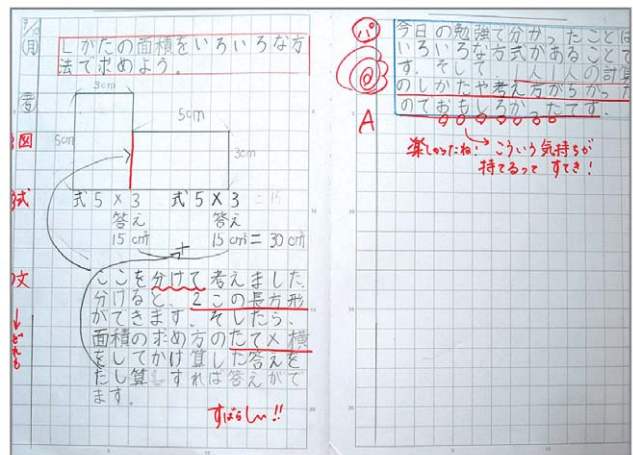 9/10
(月)
L かたの面積をいろいろな方
法で求めよう.
3cm
5cm
5cm
3cm
考
図
式
式 5 × 3
答え
15 cm²
式 5 × 3 = 15
答え
15 cm² = 30 cm²
+
文
ここを分けて考えました.
分けると、2この長方形
ができます. そしたら、
面積の求め方のたて×横
をしてかけ算した答えを
たし算 すれば答えがで
ます.
↓どれも
すばらしい!!
パ
@
A
今日の勉強で分かったことは
いろいろな方式があることで
す. そして 一人一人の計算
のしかたや考え方がちがった
のでおもしろかったです.
楽しかったね! こういう気持ちが
持てるって すてき!